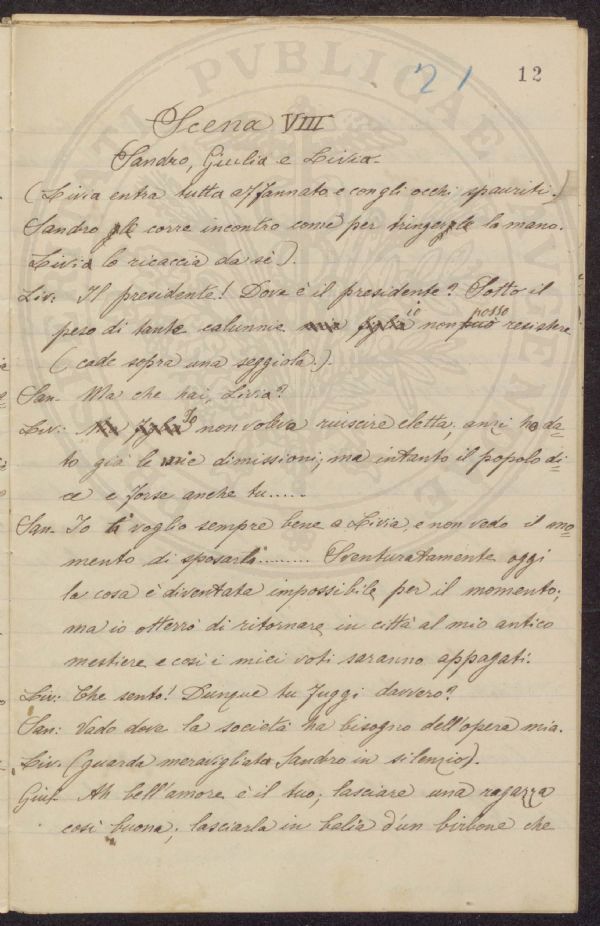 21 12
Scena VIII
Sandro, Giulia e Livia.
(Livia entra tutta affannata e con gli occhi spauriti.)
Sandro le corre incontro come per stringerle la mano.
Livia lo ricaccia da sè).
Liv: Il presidente! Dove è il presidente? Sotto il
peso di tante calunnie mia figlia io non può posso resistere
(cade sopra una seggiola.).
San. Ma che hai, Livia?
Liv: Mia figlia Io non voleva riuscire eletta; anzi ho da=
to già le mie dimissioni; ma intanto il popolo di=
ce e forse anche tu......
San. Io ti voglio sempre bene o Livia, e non vedo il mo=
mento di sposarti......... Sventuratamente oggi
la cosa è diventata impossibile per il momento;
ma io otterrò di ritornare in città al mio antico
mestiere e così i miei voti saranno appagati.
Liv: Che sento! Dunque tu fuggi davvero?
San: Vado dove la società ha bisogno dell'opera mia.
Liv. (guarda meravigliata Sandro in silenzio).
Giul. Ah bell'amore è il tuo; lasciare una ragazza
così buona; lasciarla in balìa d'un birbone che